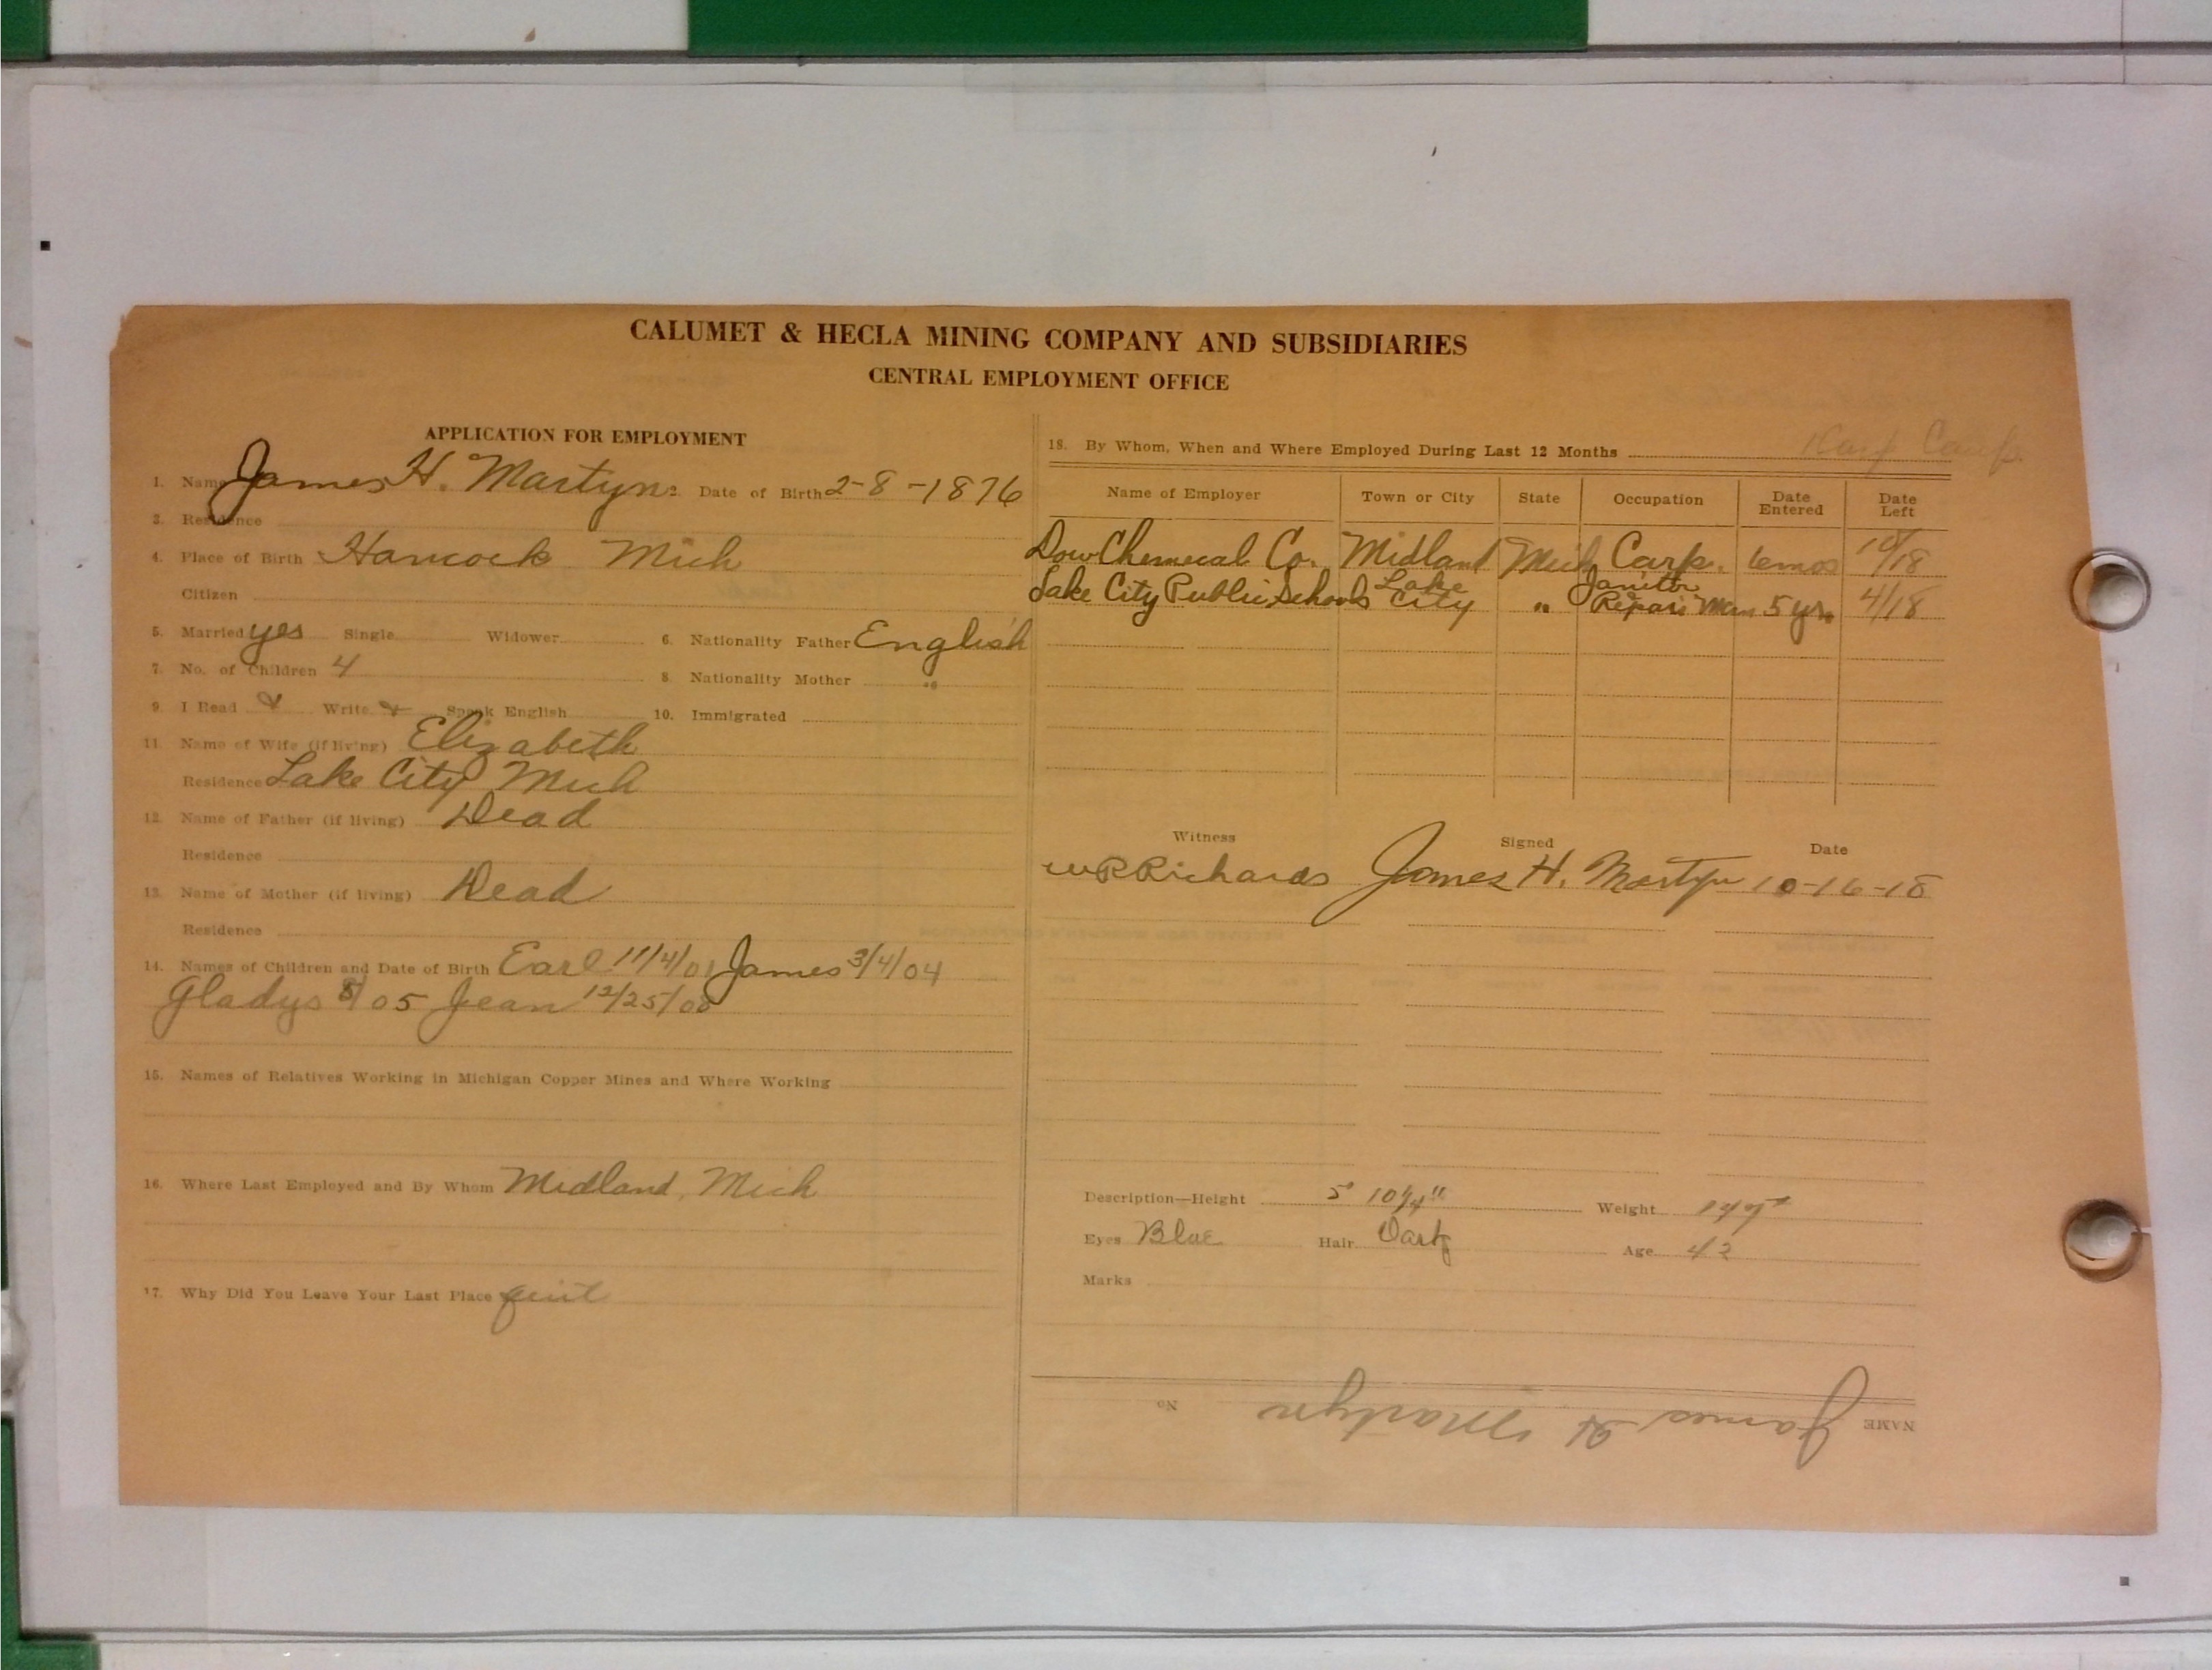 CALUMET & HECLA MINING COMPANY AND SUBSIDIARIES
CENTRAL EMPLOYMENT OFFICE
APPLICATION FOR EMPLOYMENT
1. Name James H. Martyn 2. Date of Birth 2-8-1876
3. Residence
4. Place of Birth Hancock Mich
Citizen
5. Married yes Single Widower 6. Nationality Father English
7. No. of Children 4 8. Nationality Mother "
9. I Read Write Speak English 10. Immigrated
11. Name of Wife (if living) Elizabeth
Residence Lake City Mich
12. Name of Father (if living) Dead
Residence
13. Name of Mother (if living) Dead
Residence
14. Names of Children and Date of Birth Earl 11/4/01 James 3/4/04
Gladys 8/05 Jean 12/25/08
15. Names of Relatives Working in Michigan Copper Mines and Where Working
16. Where Last Employed and By Whom Midland, Mich
17. Why Did You Leave Your Last Place quit
18. By Whom, When and Where Employed During Last 12 Months
Name of Employer Town or City State Occupation Date Entered Date Left
Dow Chemecal Co. Midland Mich Carp. 6 mos 10/18
Lake City Public Schools Lake City " Janitor Repair Man 5 yrs 4/18
Witness Signed Date
W R Richards James H. Martyn 10-16-18
Description—Height 5 10 1/4" Weight
Eyes Blue Hair Dark Age 42
Marks
NAME James H Martyn No